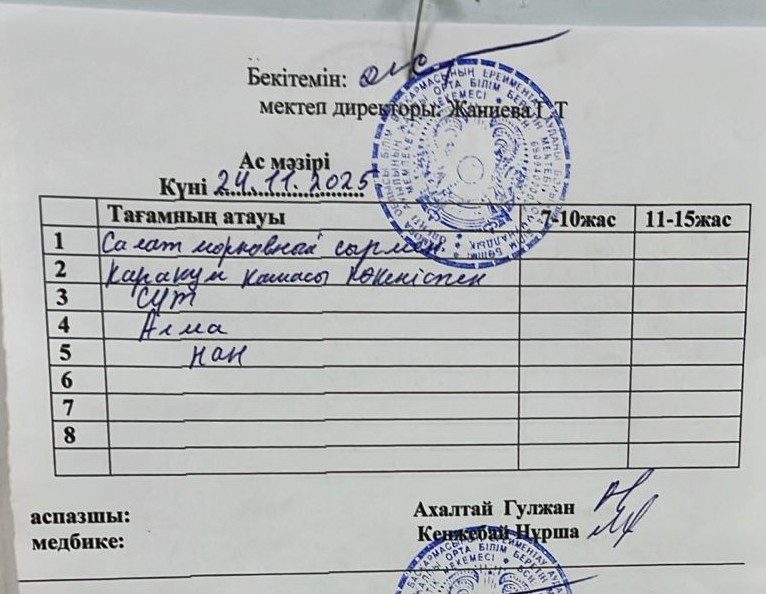 Бекітемін:
мектеп директоры: Жаниева Г.Т
Ас мәзірі
Күні 24.11.2025
Тағамның атауы 7-10жас 11-15жас
1 Салат морковный сырмен.
2 Каракум көкөніспен
3 сүт
4 Алма
5 нан
6
7
8
аспазшы: Ахалтай Гулжан
медбике: Кенжебай Нұрша